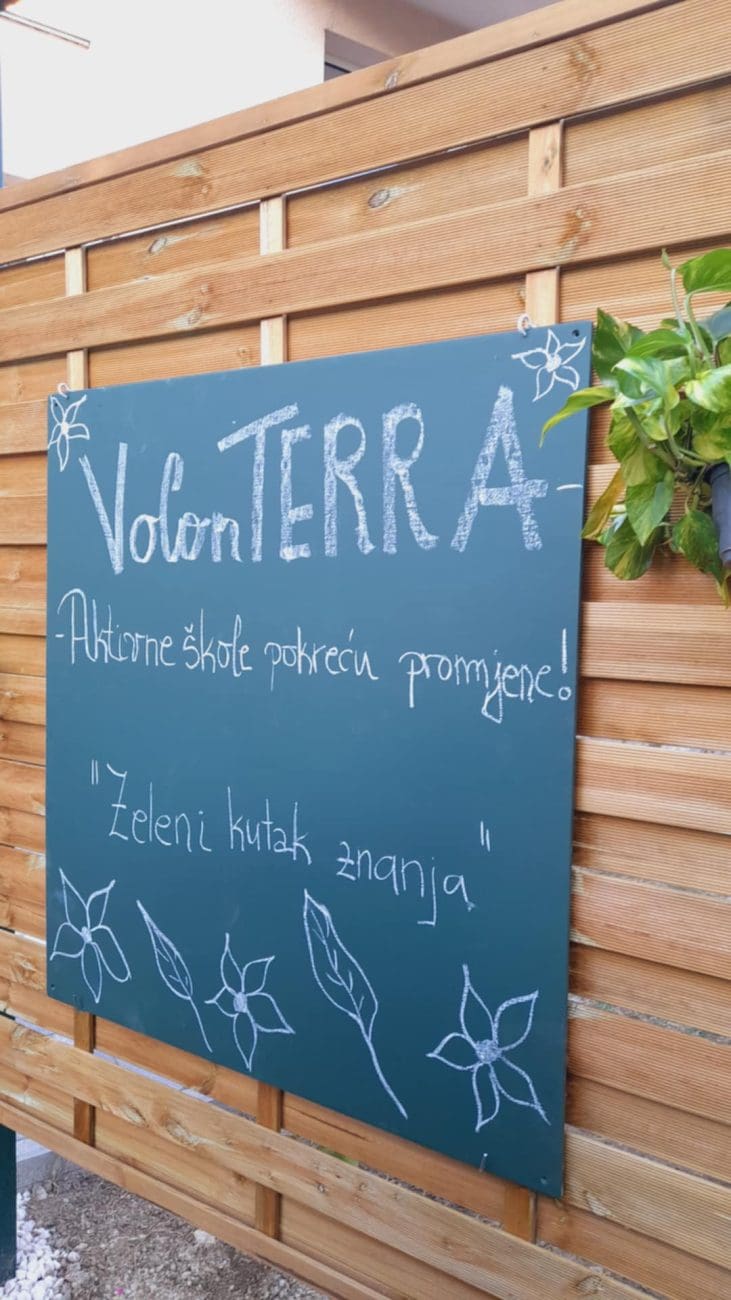 VolonTERRA -
-Aktivne škole pokreću promjene!
"Zeleni kutak znanja"